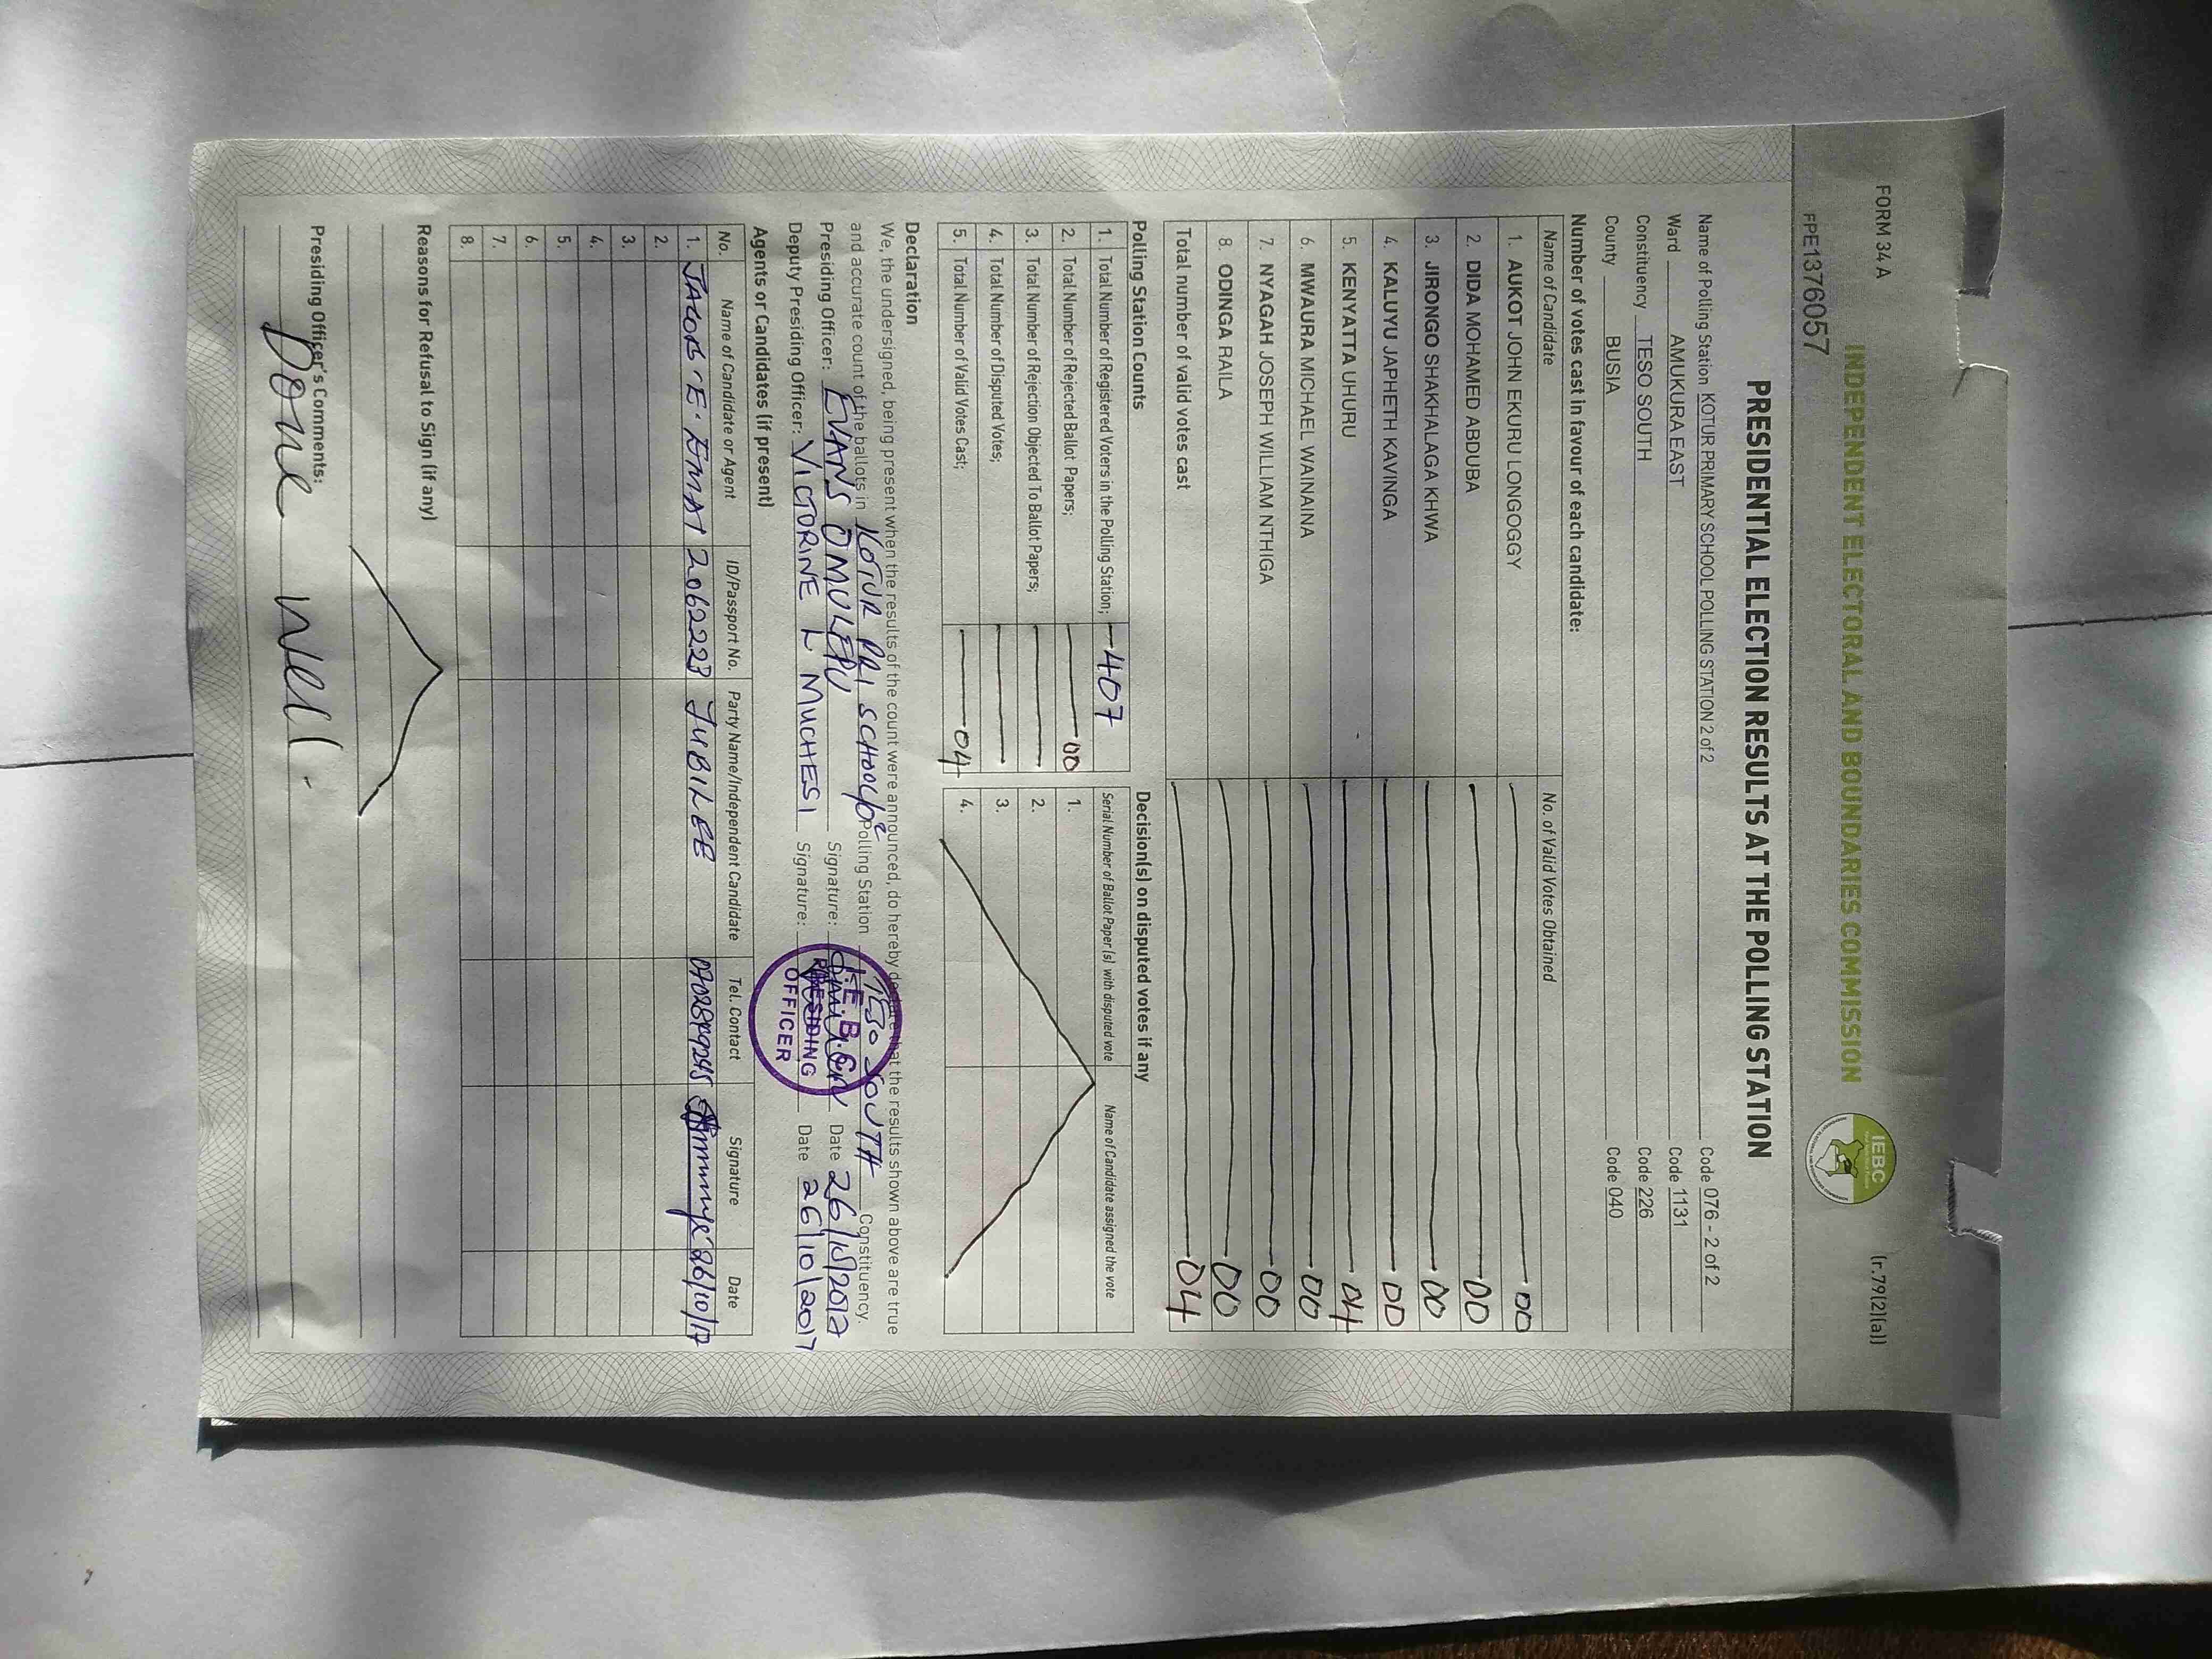 FORM 34 A
(r.79(2)(a))
INDEPENDENT ELECTORAL AND BOUNDARIES COMMISSION
IEBC
FPE1376057
PRESIDENTIAL ELECTION RESULTS AT THE POLLING STATION
Name of Polling Station KOTUR PRIMARY SCHOOL POLLING STATION 2 of 2 Code 076 - 2 of 2
Ward AMUKURA EAST Code 1131
Constituency TESO SOUTH Code 226
County BUSIA Code 040
Number of votes cast in favour of each candidate:
Name of Candidate No. of Valid Votes Obtained
1. AUKOT JOHN EKURU LONGOGGY 00
2. DIDA MOHAMED ABDUBA 00
3. JIRONGO SHAKHALAGA KHWA 00
4. KALUYU JAPHETH KAVINGA 00
5. KENYATTA UHURU 04
6. MWAURA MICHAEL WAINAINA 00
7. NYAGAH JOSEPH WILLIAM NTHIGA 00
8. ODINGA RAILA 00
Total number of valid votes cast 04
Polling Station Counts
1. Total Number of Registered Voters in the Polling Station; 407
2. Total Number of Rejected Ballot Papers; 00
3. Total Number of Rejection Objected To Ballot Papers;
4. Total Number of Disputed Votes;
5. Total Number of Valid Votes Cast; 04
Decision(s) on disputed votes if any
Serial Number of Ballot Paper(s) with disputed vote Name of Candidate assigned the vote
1.
2.
3.
4.
Declaration
We, the undersigned, being present when the results of the count were announced, do hereby declare that the results shown above are true
and accurate count of the ballots in KOTUR PRI SCHOOL Polling Station TESO SOUTH Constituency.
Presiding Officer: EVANS OMULEPU Signature: Date 26/10/2017
Deputy Presiding Officer: VICTORINE L MUCHESI Signature: Date 26/10/2017
I.E.B.C
PRESIDING
OFFICER
Agents or Candidates (if present)
No. Name of Candidate or Agent ID/Passport No. Party Name/Independent Candidate Tel. Contact Signature Date
1. JACOB E. EMAT 2062223 JUBILEE 26/10/17
2.
3.
4.
5.
6.
7.
8.
Reasons for Refusal to Sign (if any)
Presiding Officer's Comments:
Done well.